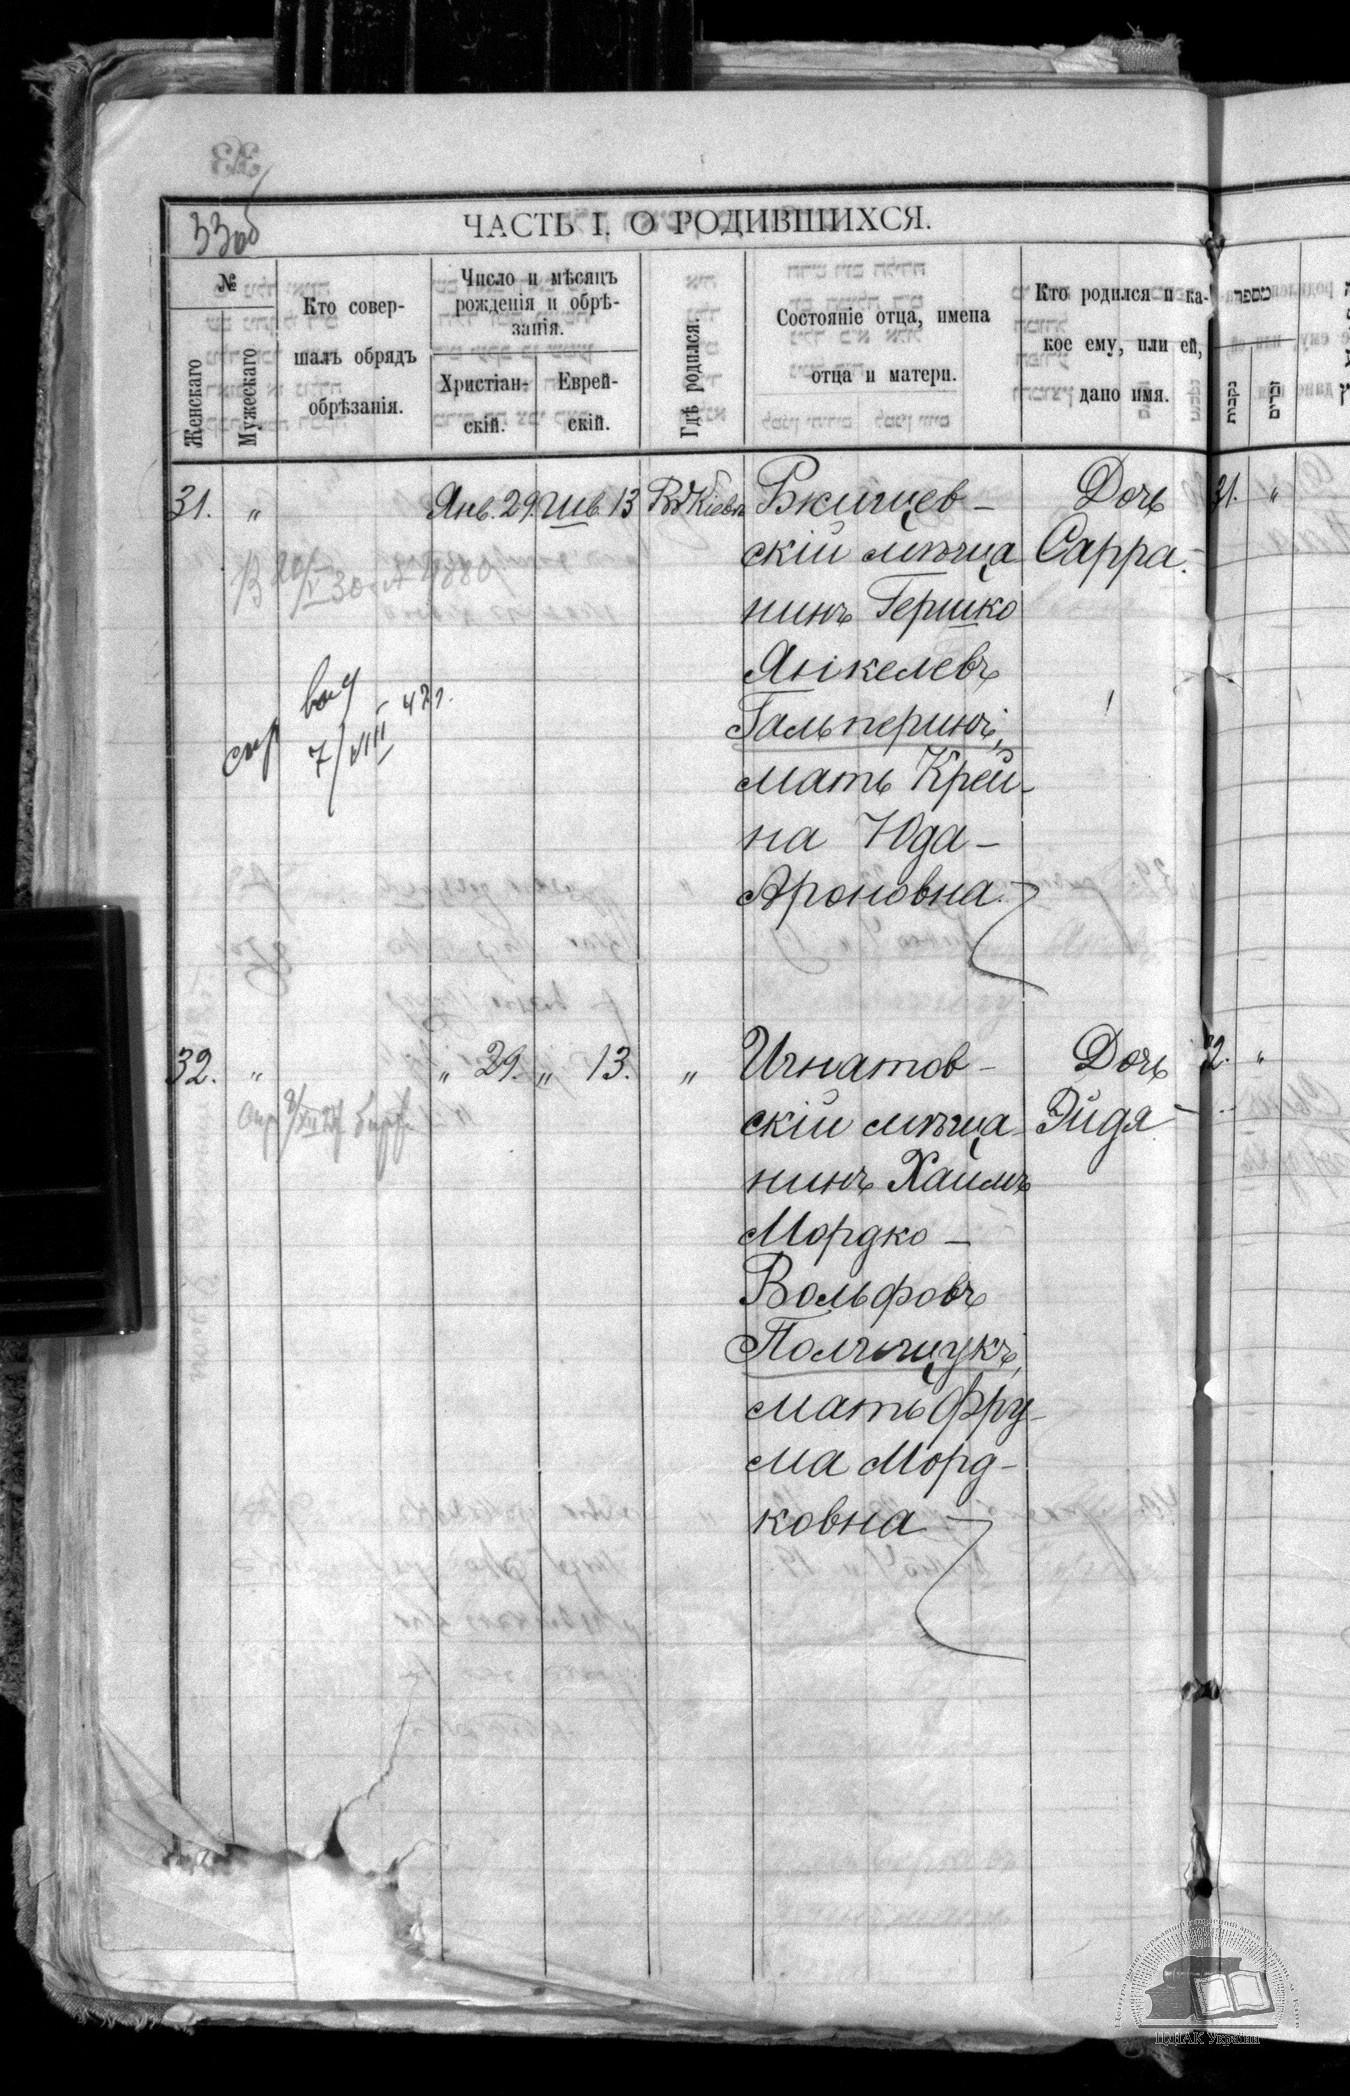 33об
ЧАСТЬ I. О РОДИВШИХСЯ.
№
Женскаго
Мужескаго
Кто совер-
шалъ обрядъ
обрѣзанія.
Число и мѣсяцъ
рожденія и обрѣ-
занія.
Христіан-
скій.
Еврей-
скій.
Гдѣ родился.
Состояніе отца, имена
отца и матери.
Кто родился и ка-
кое ему, или ей,
дано имя.
מספר
נקבות
זכרים
31. " Янв. 29. Шв. 13 Въ Кіевѣ
Ржищев-
скій мѣща
нинъ Гершко
Янкелевъ
Гальперинъ,
мать Крей-
на Юда-
Ароновна.
Дочь
Сарра.
31. "
спр выд
7/VIII 42г.
32. " " 29. " 13. "
Игнатов-
скій мѣща
нинъ Хаимъ
Мордко-
Вольфовъ
Полищукъ,
мать Фру-
ма Морд-
ковна
Дочь
Эйдя
32. "
ЦДІАК України